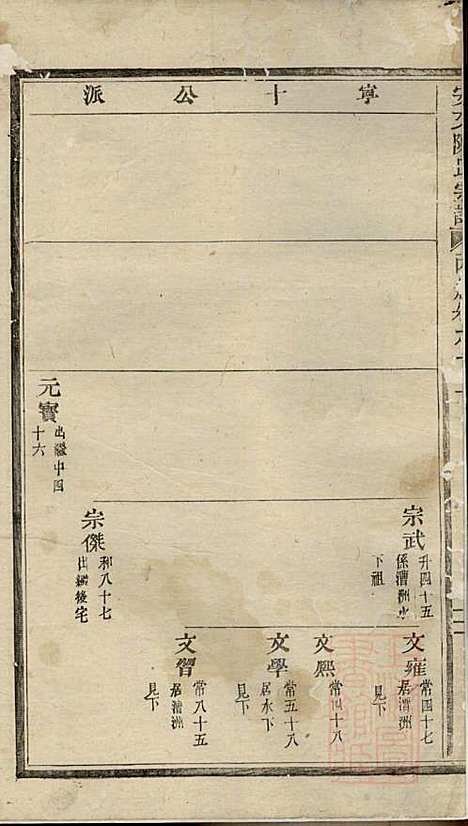 寧十公派
宗武
升四十五
係漕洲水
下祖
文雍
常四十七
居漕洲
見下
文熙
常四十八
文學
常五十八
居水下
見下
文習
常八十五
居漕洲
見下
宗傑
和八十七
出繼後宅
元寶
出繼中四
十六